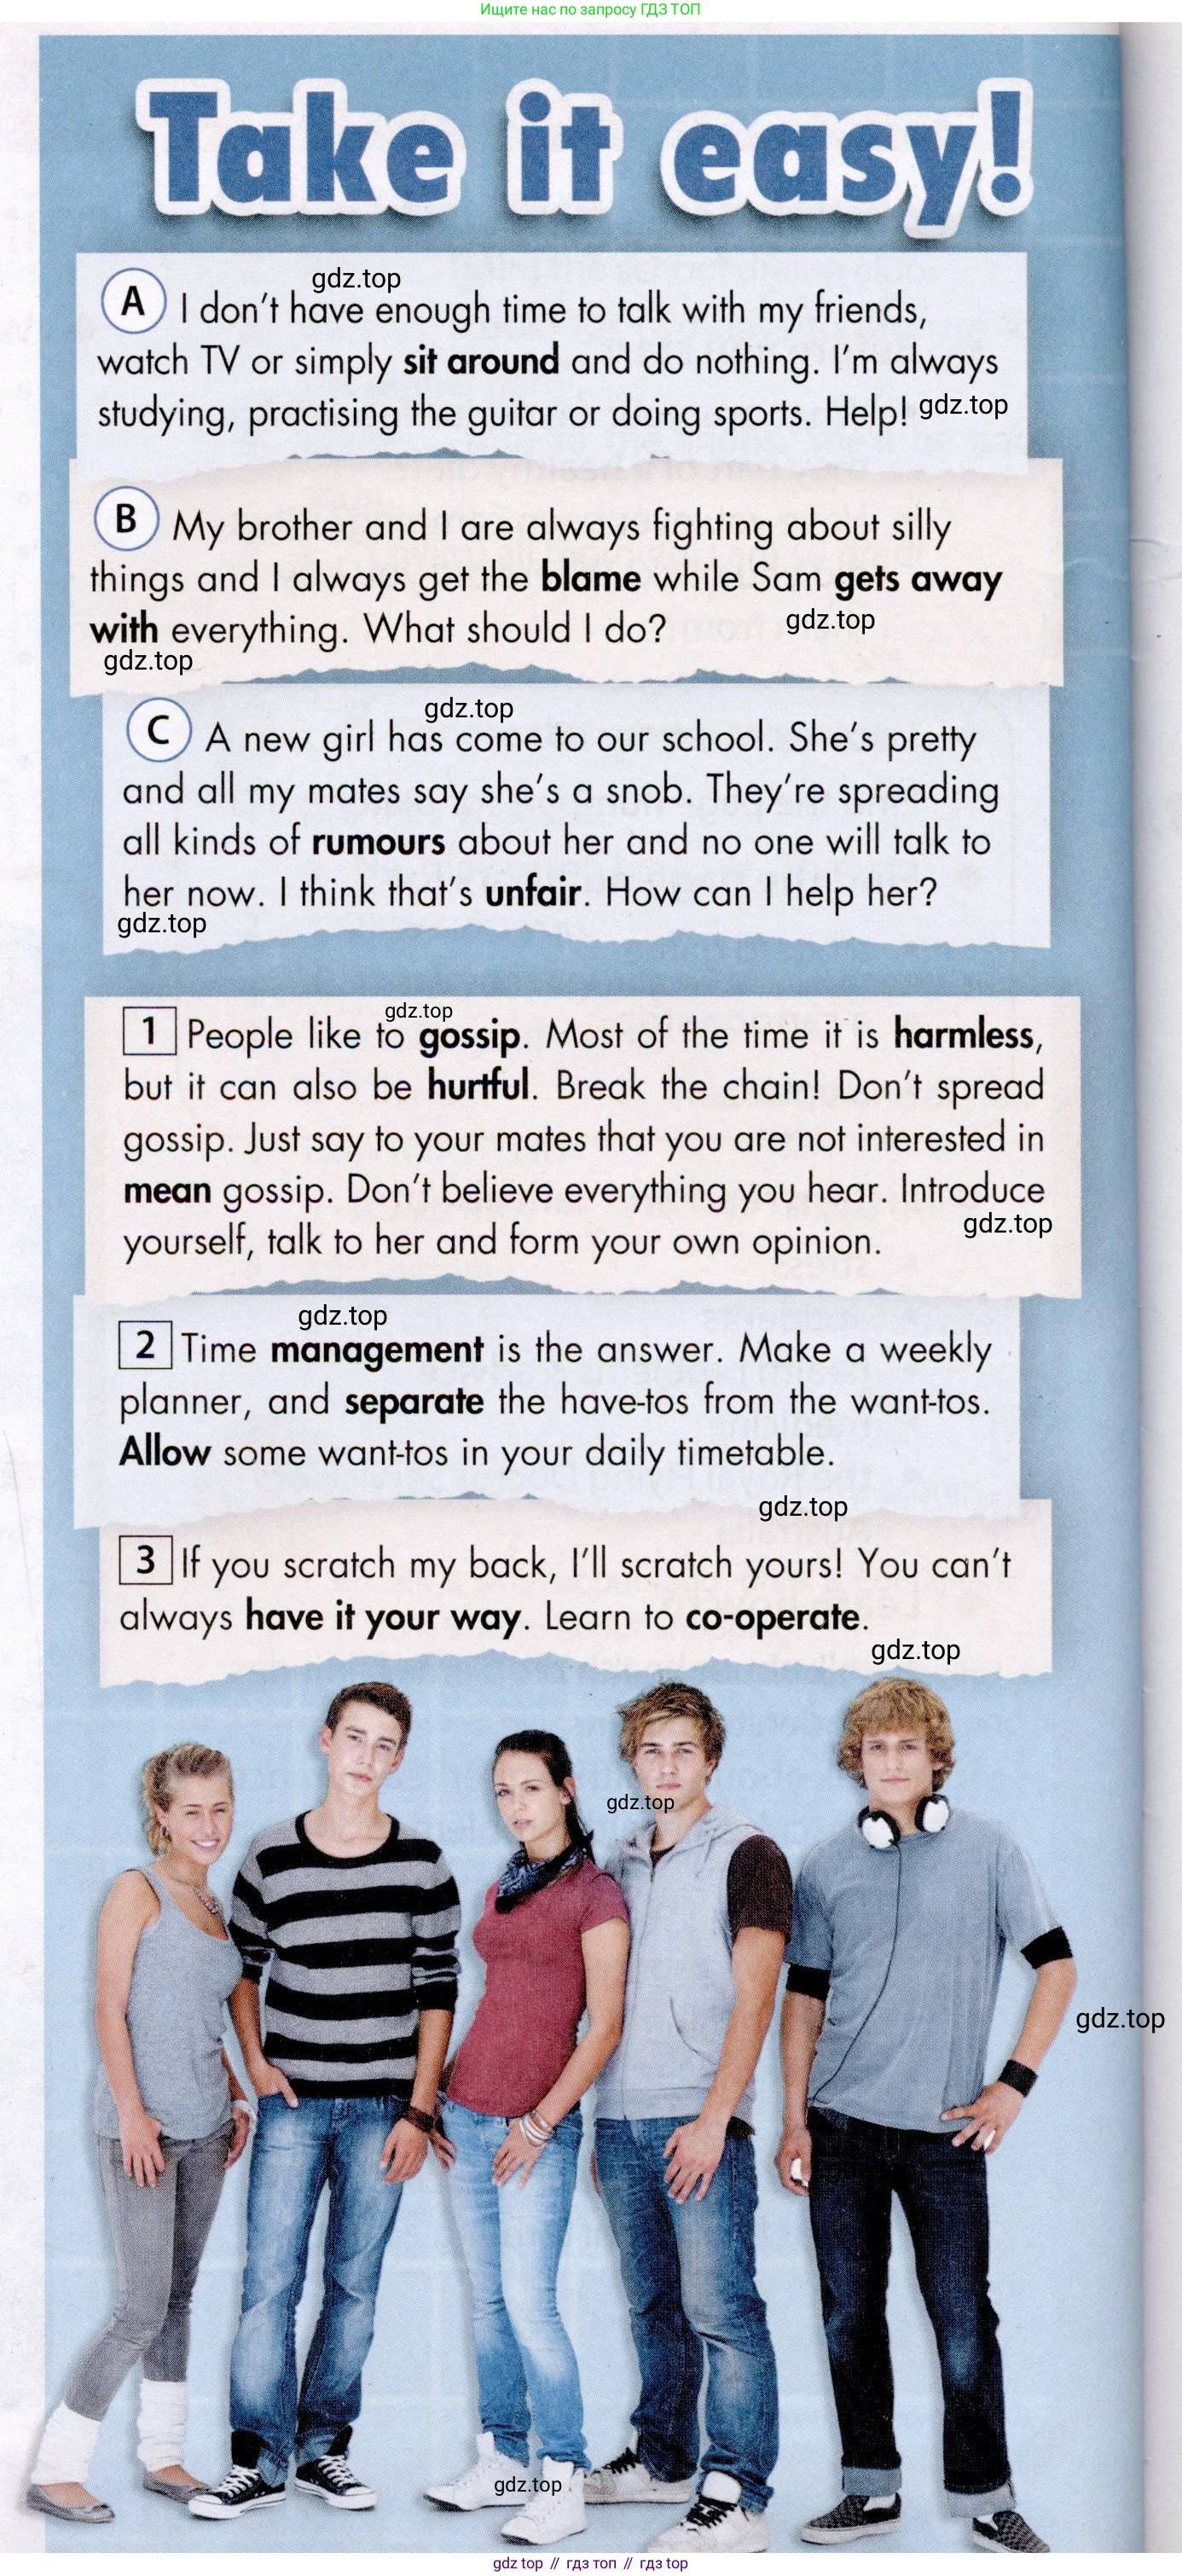 Ищите нас по запросу ГДЗ ТОП
Take it easy!
gdz.top
A I don't have enough time to talk with my friends,
watch TV or simply sit around and do nothing. I'm always
studying, practising the guitar or doing sports. Help! gdz.top
B My brother and I are always fighting about silly
things and I always get the blame while Sam gets away
with everything. What should I do? gdz.top
gdz.top
gdz.top
C A new girl has come to our school. She's pretty
and all my mates say she's a snob. They're spreading
all kinds of rumours about her and no one will talk to
her now. I think that's unfair. How can I help her?
gdz.top
gdz.top
1 People like to gossip. Most of the time it is harmless,
but it can also be hurtful. Break the chain! Don't spread
gossip. Just say to your mates that you are not interested in
mean gossip. Don't believe everything you hear. Introduce
gdz.top
yourself, talk to her and form your own opinion.
gdz.top
2 Time management is the answer. Make a weekly
planner, and separate the have-tos from the want-tos.
Allow some want-tos in your daily timetable.
gdz.top
3 If you scratch my back, I'll scratch yours! You can't
always have it your way. Learn to co-operate.
gdz.top
gdz.top
gdz.top
gdz.top
gdz top // гдз топ // гдз top